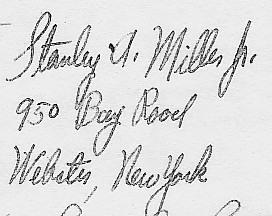 Stanley A. Miller Jr.
950 Bay Road
Webster, New York